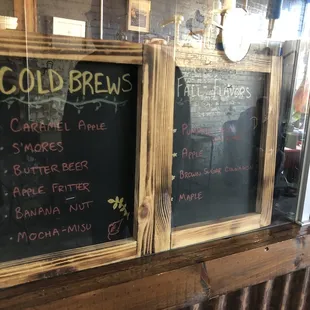 COLD BREWS
· CARAMEL APPLE
· S'MORES
· BUTTERBEER
· APPLE FRITTER
· BANANA NUT
· MOCHA-MISU
FALL FLAVORS
APPLE
BROWN SUGAR
MAPLE